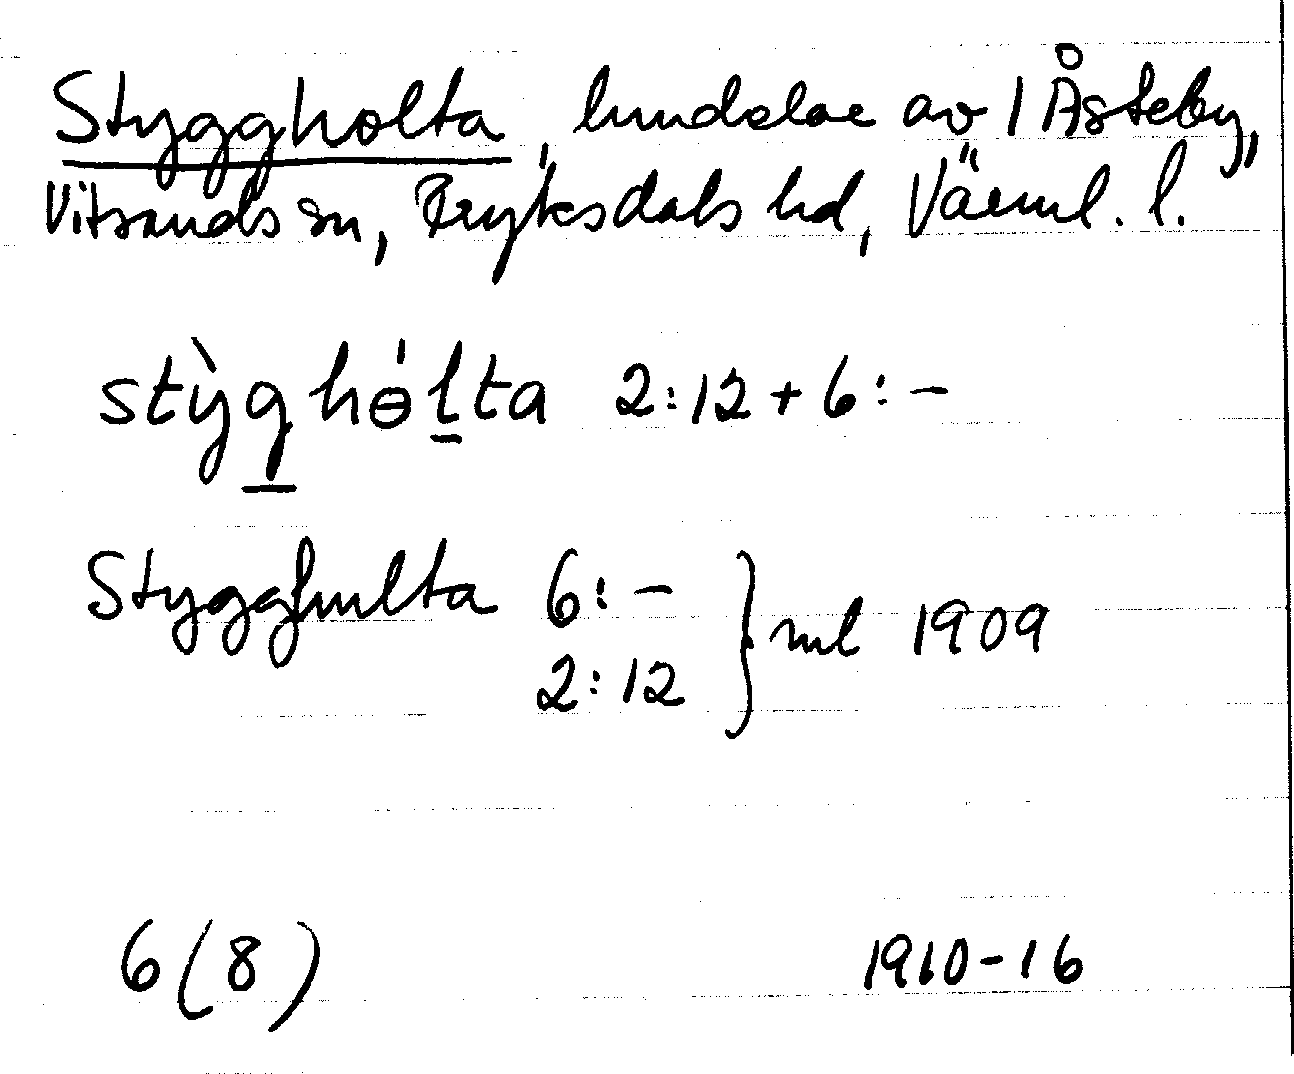 Styggholta, hundelar av 1 Åsteby,
Vitsands sn, Fryksdals hd, Värml. l.
stỳg hɵ́lta 2:12 + 6:-
Stygghulta 6:-
2:12 } ml 1909
6(8) 1910-16